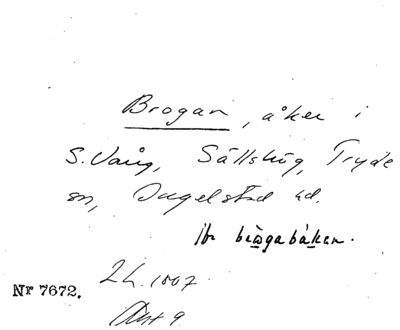 Brogan, åker i
S. Vång, Sällshög, Tryde
sn, Ingelstad hd.
brogabåken.
Nr 7672.